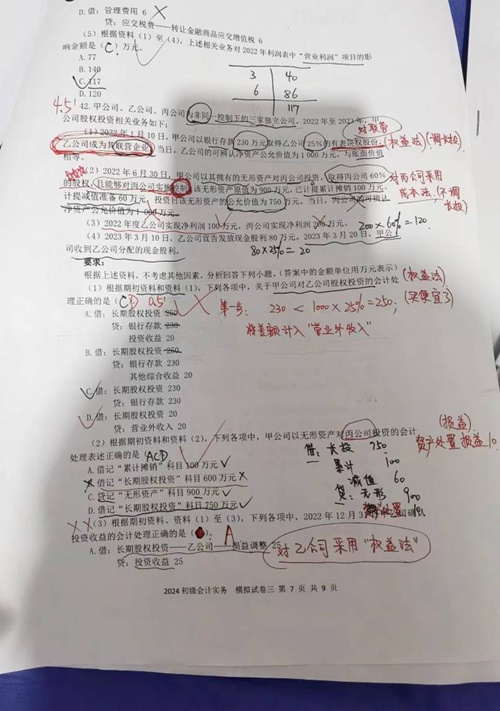 D.借：管理费用 6
贷：应交税费——转让金融商品应交增值税 6
(5) 根据资料（1）至（4），上述相关业务对2022年利润表中“营业利润”项目的影
响金额是（C）万元。
A.77
B.140
C.117
D.120
3 40
6 86
117
4.5'
42.甲公司、乙公司、丙公司为非同一控制下的三家独立公司。2022年至2023年，甲
公司股权投资相关业务如下：
对联营
(1) 2022年1月10日，甲公司以银行存款230万元取得乙公司25%的有表决权股份，
(权益法)
乙公司成为其联营企业，当日，乙公司的可辨认净资产公允价值为1000万元，与账面价值
相等。
(2) 2022年6月30日，甲公司以其拥有的无形资产对丙公司投资，取得丙公司60%
的股权，且能够对丙公司实施控制，该无形资产原值为900万元，已计提累计摊销100万元，
计提减值准备60万元，投资日该无形资产的公允价值为750万元，当日，丙公司的可辨认
对丙公司采用
成本法
(3) 2022年度乙公司实现净利润100万元，丙公司实现净利润200万元。
200×60%=120
(4) 2023年3月10日，乙公司宣告发放现金股利80万元。2023年3月20日，甲公
司收到乙公司分配的现金股利。
80×25%=20
要求：
根据上述资料，不考虑其他因素，分析回答下列小题。（答案中的金额单位用万元表示）
(1) 根据期初资料和资料（1），下列各项中，关于甲公司对乙公司股权投资的会计处
理正确的是（CD）
0.5'
(权益法)
(买便宜了)
第一步： 230 < 1000×25%=250,
将差额计入“营业外收入”
A.借：长期股权投资 250
贷：银行存款 230
投资收益 20
B.借：长期股权投资 250
贷：银行存款 230
其他综合收益 20
C.借：长期股权投资 230
贷：银行存款 230
D.借：长期股权投资 20
贷：营业外收入 20
(2) 根据期初资料和资料（2），下列各项中，甲公司以无形资产对丙公司投资的会计
处理表述正确的是（ACD）
(损益)
资产处置损益10
A.借记“累计摊销”科目100万元
B.借记“长期股权投资”科目600万元
C.贷记“无形资产”科目900万元
D.借记“长期股权投资”科目750万元
借：长投 750
累计 100
减值 60
贷：无形 900
(3) 根据期初资料、资料（1）至（3），下列各项中，2022年12月3
投资收益的会计处理正确的是
A
A.借：长期股权投资——乙公司——损益调整 25
贷：投资收益 25
对乙公司采用“权益法”
2024 初级会计实务 模拟试卷三 第 7 页 共 9 页